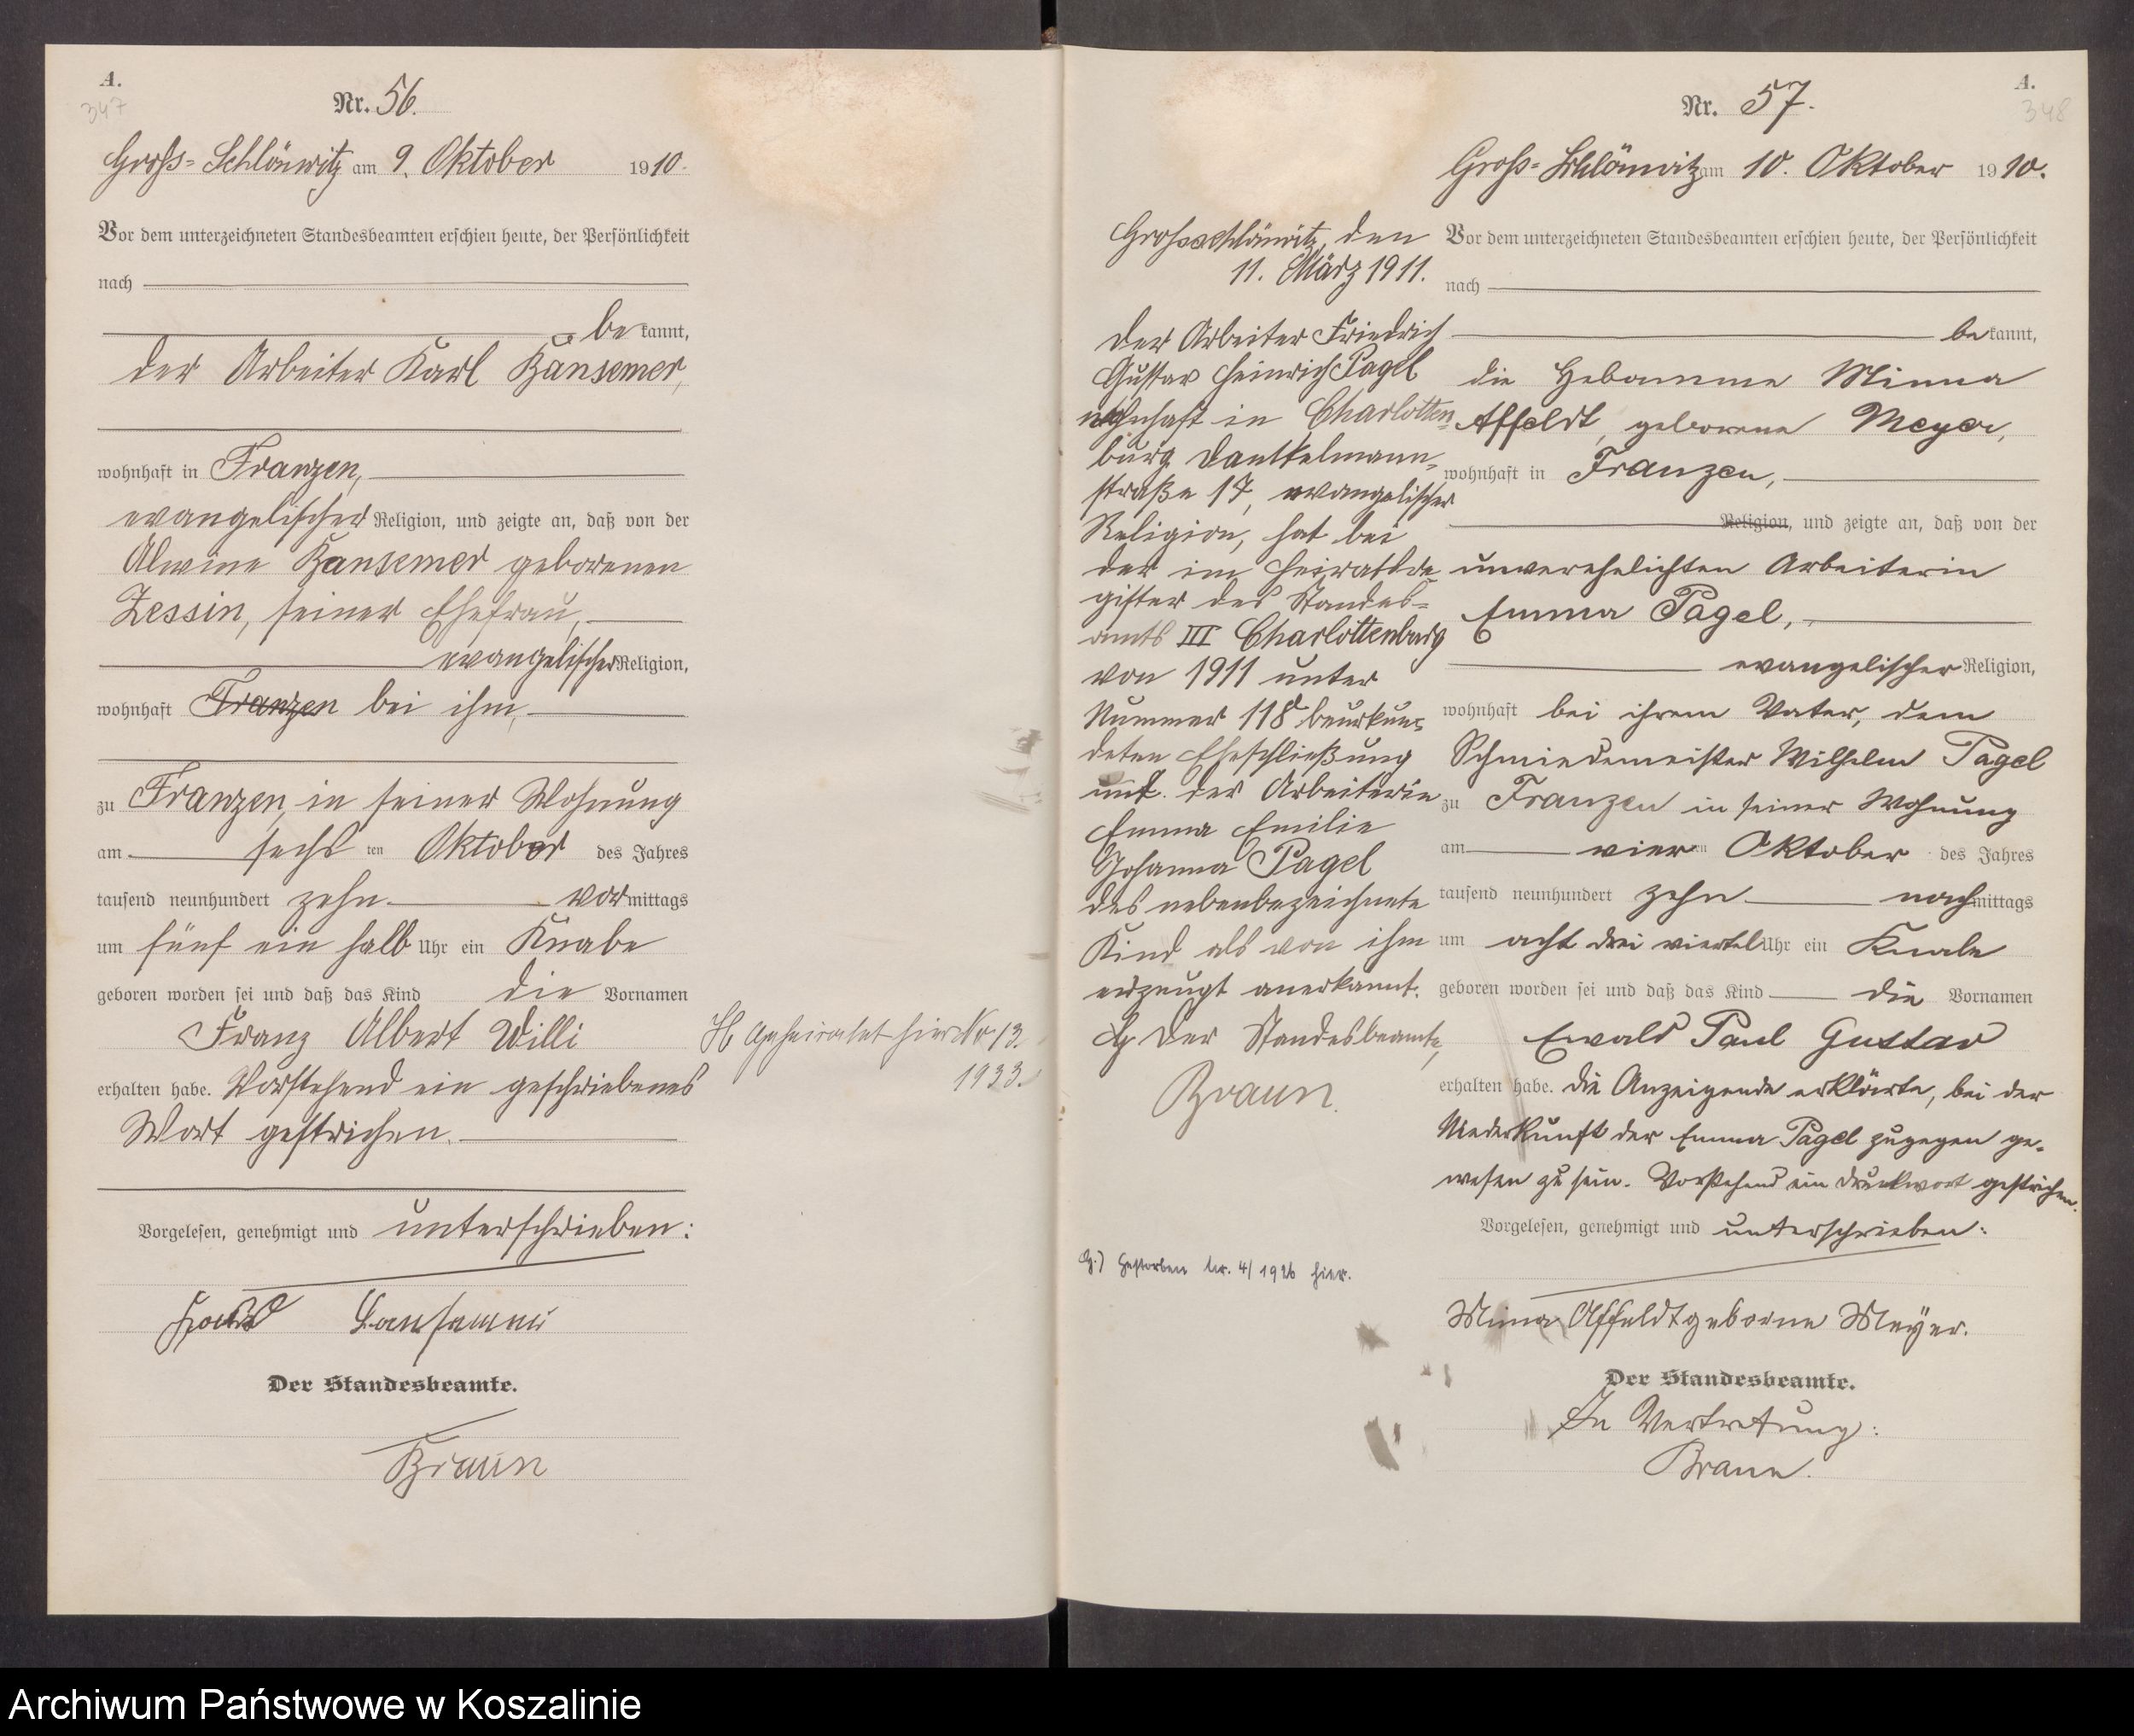 A.
347
Nr. 56.
Gross-Schlönwitz am 9. Oktober 1910.
Vor dem unterzeichneten Standesbeamten erschien heute, der Persönlichkeit
nach
bekannt,
der Arbeiter Karl Bansemer,
wohnhaft in Franzen,
evangelischer Religion, und zeigte an, daß von der
Alwine Bansemer geborenen
Zessin, seiner Ehefrau,
evangelischer Religion,
wohnhaft Franzen bei ihm,
zu Franzen, in seiner Wohnung
am sechsten Oktober des Jahres
tausend neunhundert zehn vormittags
um fünf ein halb Uhr ein Knabe
geboren worden sei und daß das Kind die Vornamen
Franz Albert Willi
erhalten habe. Vorstehend ein geschriebenes
Wort gestrichen.
Vorgelesen, genehmigt und unterschrieben:
Bansemer
Der Standesbeamte.
Braun
H Geheiratet hier Nr 13.
1933.
A.
348
Nr. 57.
Gross-Schlönwitz am 10. Oktober 1910.
Vor dem unterzeichneten Standesbeamten erschien heute, der Persönlichkeit
nach
bekannt,
die Hebamme Minna
Affeldt, geborene Meyer,
wohnhaft in Franzen,
Religion, und zeigte an, daß von der
unverehelichten Arbeiterin
Emma Pagel,
evangelischer Religion,
wohnhaft bei ihrem Vater, dem
Schmiedemeister Wilhelm Pagel
zu Franzen in seiner Wohnung
am vierten Oktober des Jahres
tausend neunhundert zehn nachmittags
um acht drei viertel Uhr ein Knabe
geboren worden sei und daß das Kind die Vornamen
Ewald Paul Gustav
erhalten habe. Die Anzeigende erklärte, bei der
Niederkunft der Emma Pagel zugegen ge-
wesen zu sein. Vorstehend ein Druckwort gestrichen.
Vorgelesen, genehmigt und unterschrieben:
Minna Affeldt geborne Meyer.
Der Standesbeamte.
In Vertretung:
Braun.
Grossschlönwitz, den
11. März 1911.
Der Arbeiter Friedrich
Gustav Heinrich Pagel
wohnhaft in Charlotten-
burg Danckelmann-
straße 17, evangelischer
Religion, hat bei
der im Heiratsre-
gister des Standes-
amts III Charlottenburg
von 1911 unter
Nummer 118 beurkun-
deten Eheschließung
mit der Arbeiterin
Emma Emilie
Johanna Pagel
das nebenbezeichnete
Kind als von ihm
erzeugt anerkannt.
Der Standesbeamte,
Braun.
Gestorben Nr. 4/1926 hier.
Archiwum Państwowe w Koszalinie